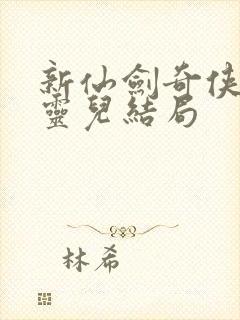 新仙劍奇俠
靈兒結局
林希